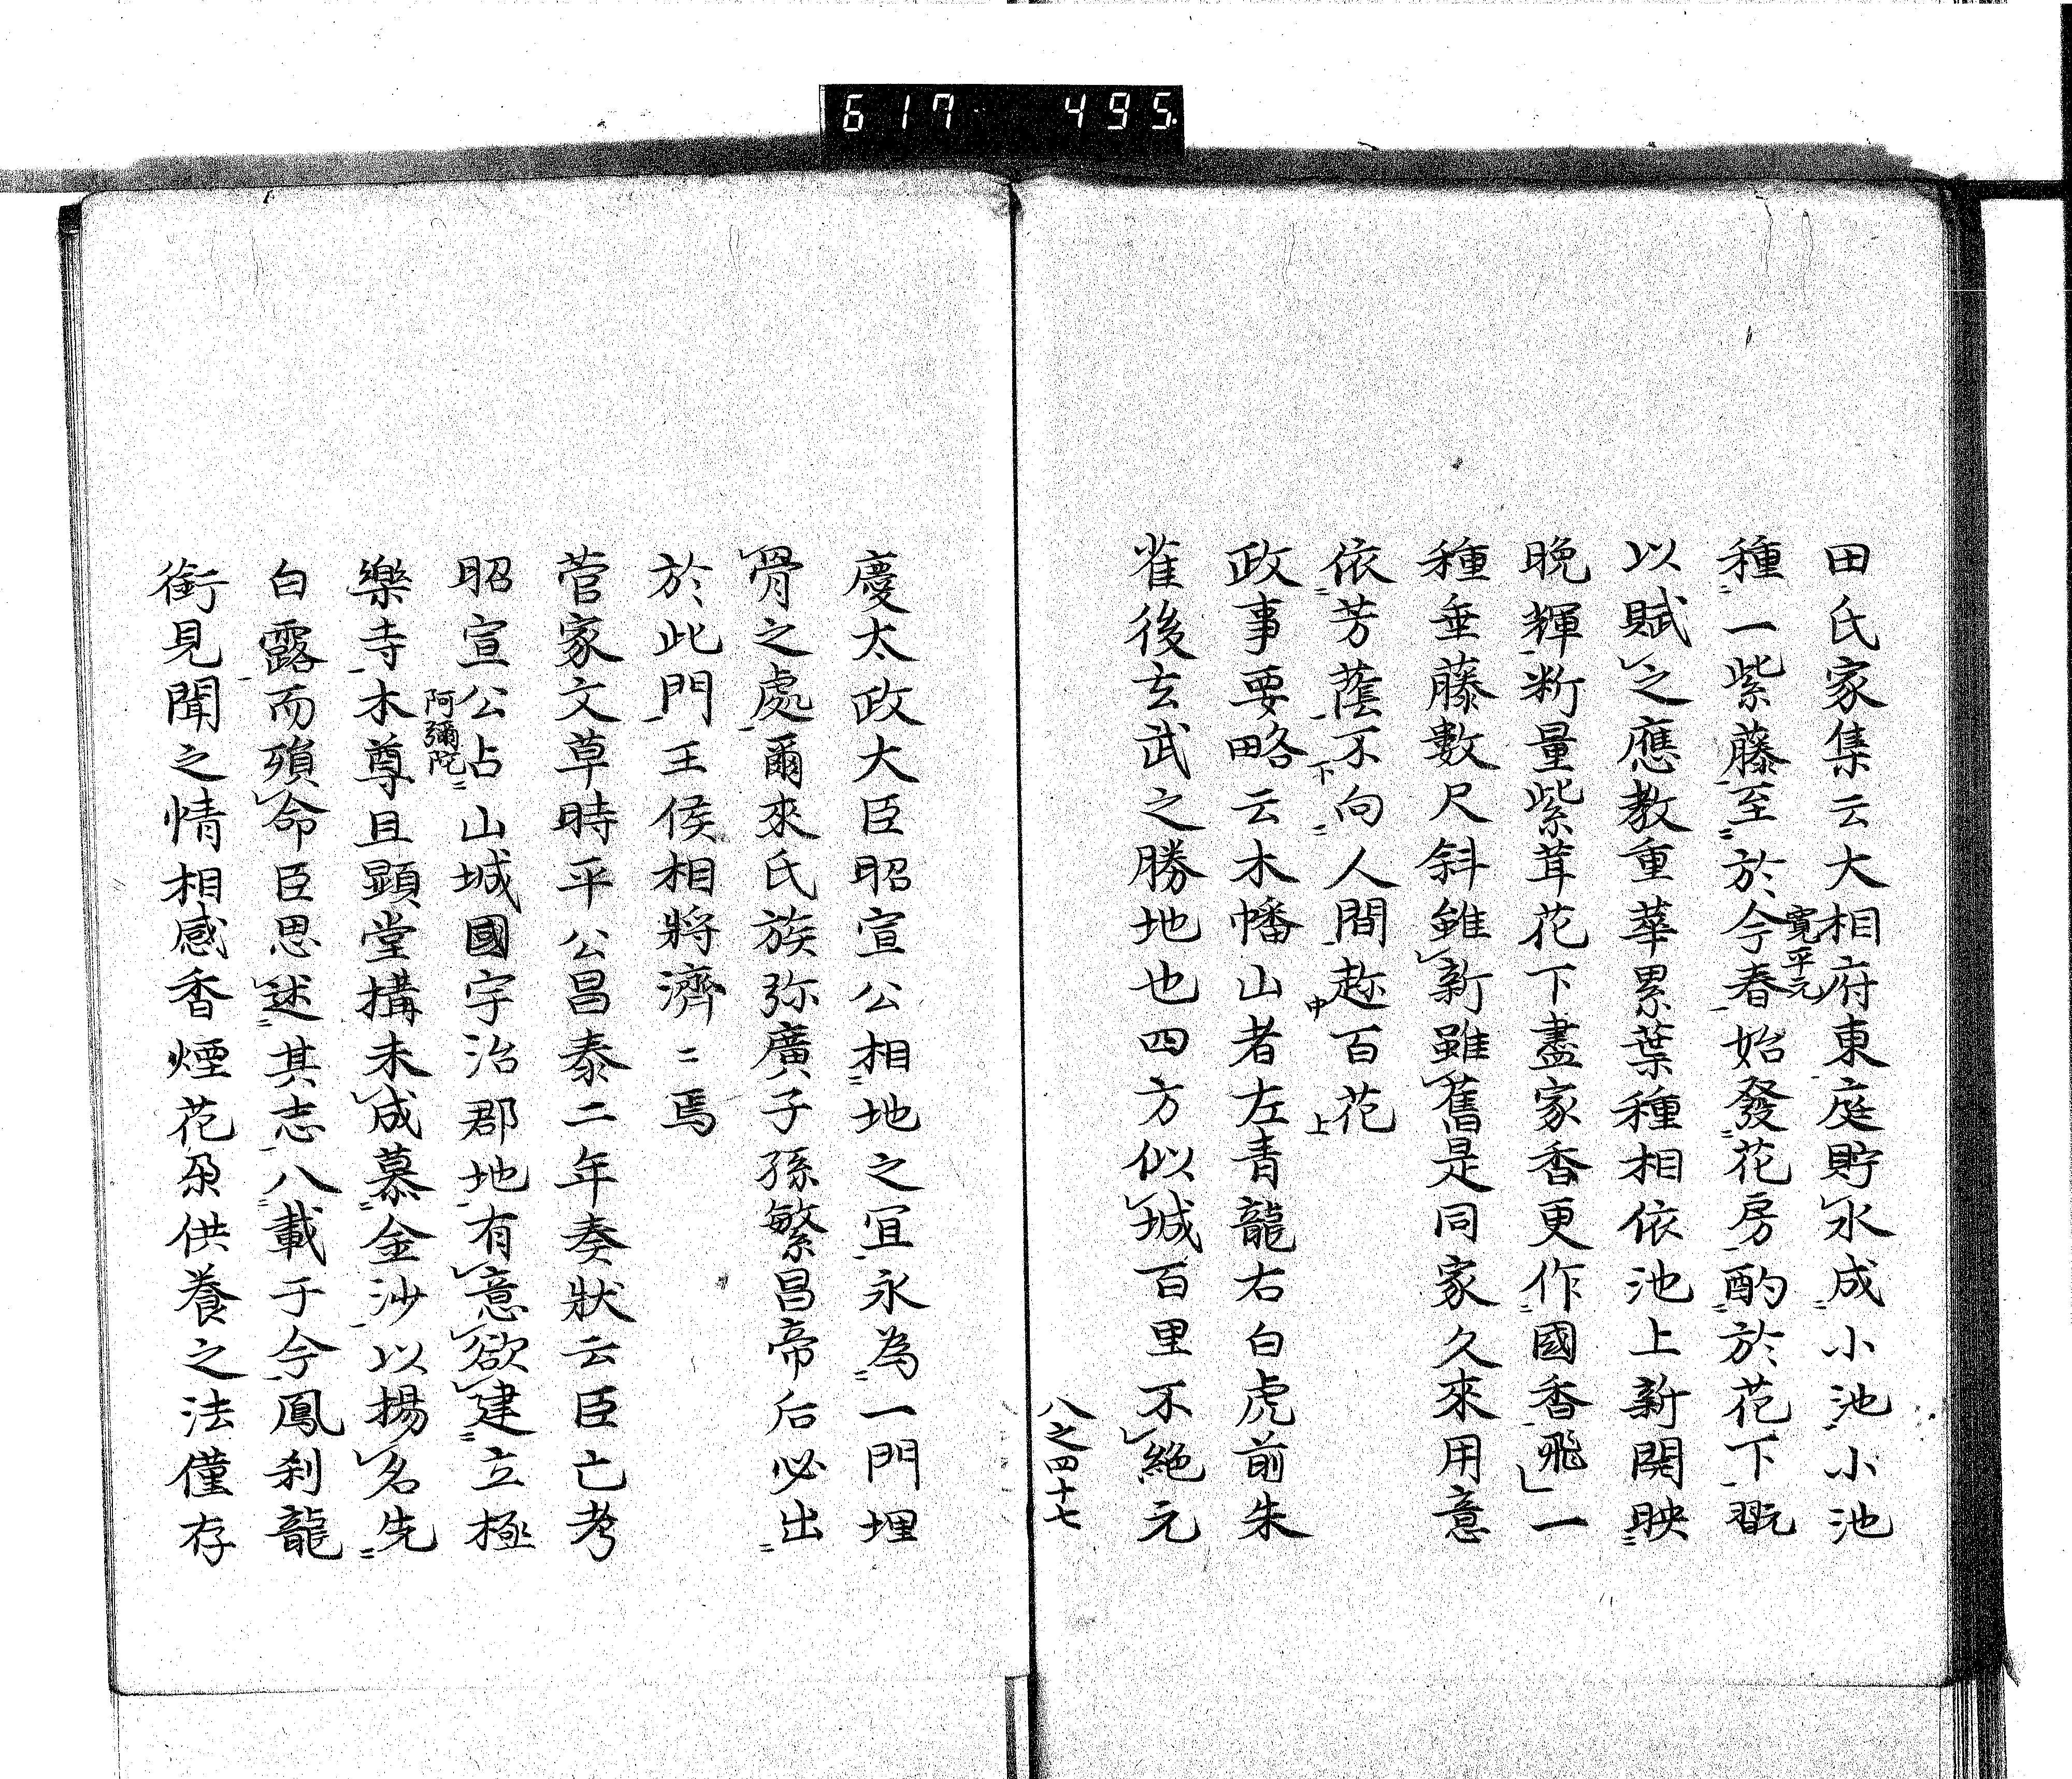 617 495
田氏家集云大相府東庭貯水成小池小池
種一紫藤至於今春始發花房酌於花下翫
寛平元
以賦之應教重華累葉種相依池上新開映
晩輝料量紫茸花下盡家香更作國香飛一
種垂藤數尺斜雖新雖舊是同家久來用意
依芳蔭不向人間趁百花
下 中 上
政事要略云木幡山者左青龍右白虎前朱
雀後玄武之勝地也四方似城百里不絶元
八之四十七
慶太政大臣昭宣公相地之宜永為一門埋
骨之處爾來氏族弥廣子孫繁昌帝后必出
於此門王侯相將濟〻焉
菅家文草時平公昌泰二年奏状云臣亡考
昭宣公占山城國宇治郡地有意欲建立極
樂寺木尊且顕堂構未成慕金沙以揚名先
阿彌陀
白露而殞命臣思述其志八載于今鳳刹龍
銜見聞之情相感香煙花朶供養之法僅存